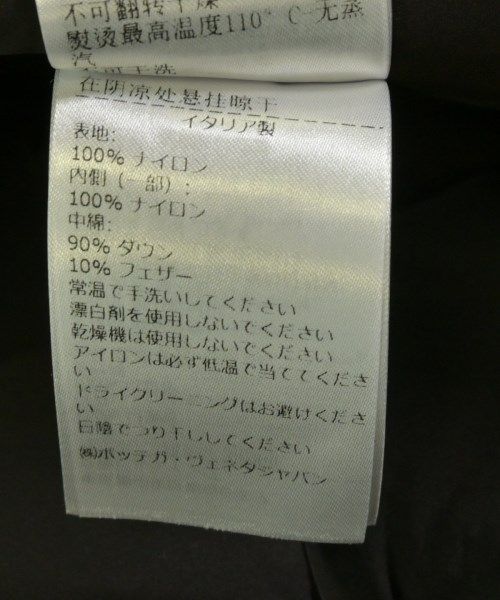 不可翻转干燥
熨烫最高温度110° C-无蒸
汽
不可干洗
在阴凉处悬挂晾干
イタリア製
表地:
100% ナイロン
内側 (一部) :
100% ナイロン
中綿:
90% ダウン
10% フェザー
常温で手洗いしてください
漂白剤を使用しないでください
乾燥機は使用しないでください
アイロンは必ず低温で当ててくださ
い
ドライクリーニングはお避けくださ
い
日陰でつり干ししてください
㈱ボッテガ・ヴェネタジャパン